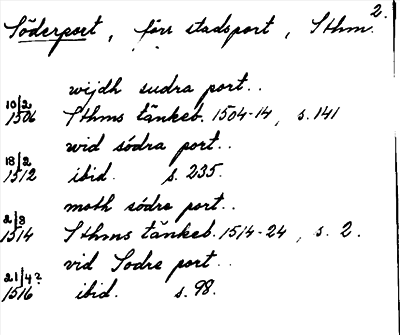 2.
Söderport, förr stadsport, Sthm.
wijdh sudra port..
10/2 1506 Sthms tänkeb. 1504-14, s. 141
wid södra port..
18/2 1512 ibid. s. 235.
moth södre port..
2/3 1514 Sthms tänkeb. 1514-24, s. 2.
vid Sodre port..
21/4? 1516 ibid. s. 98.